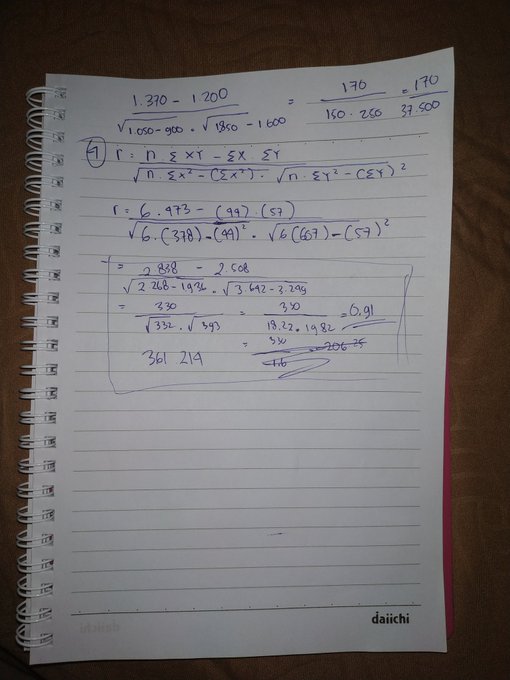 1.370 - 1.200 = 170 = 170
√1.050-900 . √1850 - 1.600 150 . 250 37.500
7 r = n . Σ XY - ΣX . ΣY
√n . Σx² - (Σx²) . √n . ΣY² - (ΣY)²
r = 6 . 473 - (44) . (57)
√6 . (378) - (44)² . √6 (607) - (57)²
= 2.838 - 2.508
√2.268 - 1936 . √3.642 - 3.249
= 330 = 330 = 0,91
√332 . √393 18,22 . 19,82
= 330
361 214
daiichi